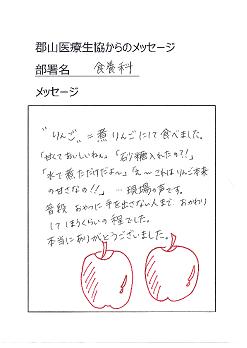 郡山医療生協からのメッセージ
部署名 食養科
メッセージ
"りんご" = 煮りんごにして食べました。
「甘くておいしいねぇ」「砂糖入れたの?!」
「水で煮ただけだよ〜」「え〜これはりんご本来
の甘さなの!!」 … 現場の声です。
普段 おやつに手を出さない人まで おかわり
してしまうくらいの程でした。
本当にありがとうございました。